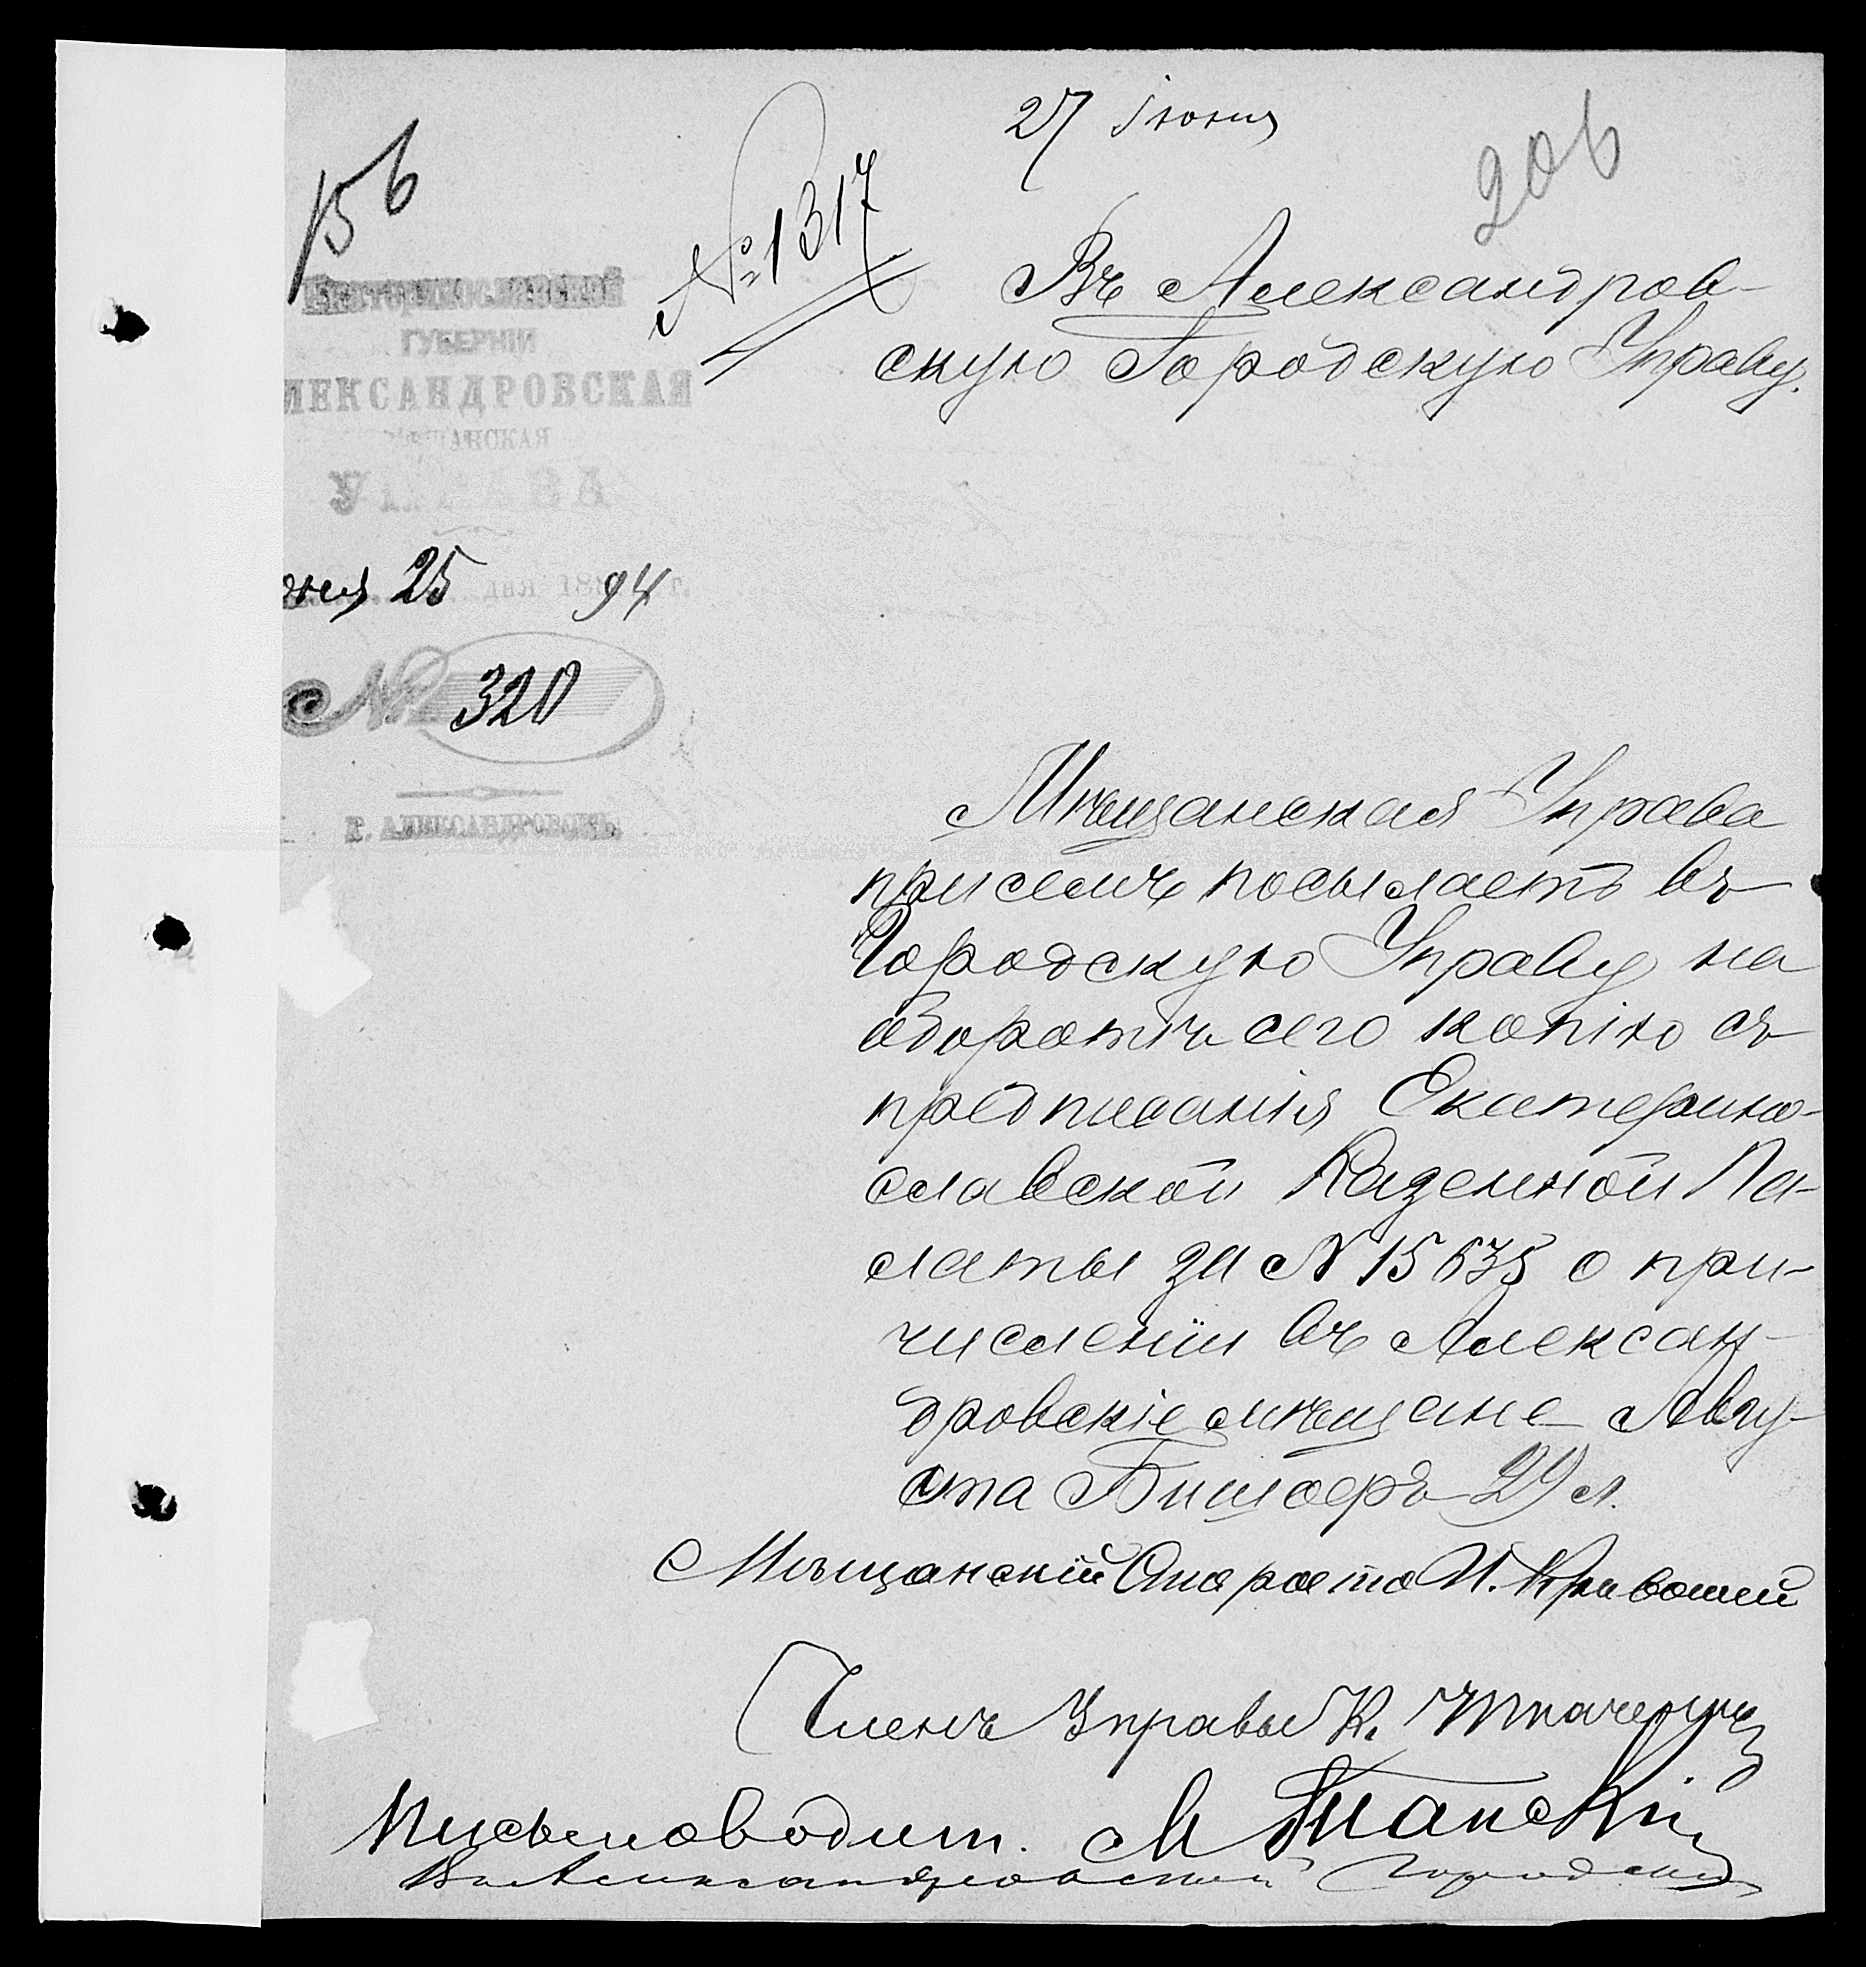 27 Іюня
156
206
№ 1317
Екатеринославской
ГУБЕРНІИ
ЛЕКСАНДРОВСКАЯ
ЩАНСКАЯ
УПРАВА
юня 25 дня 188 94 г.
№ 320
Г. АЛЕКСАНДРОВСКЪ.
Въ Александров-
скую Городскую Управу.
Мѣщанская Управа
при семъ посылаетъ въ
Городскую Управу на
оборотѣ сего копію съ
предписанія Екатерино-
славской Казенной Па-
латы за № 15635 о при-
численіи въ Алексан-
дровскіе мѣщане Авгу-
ста Бишоеръ 29 л.
Мѣщанскій Староста И. Кривошей
Членъ Управы К.
Письмоводит.
Въ Александровскую Городскую